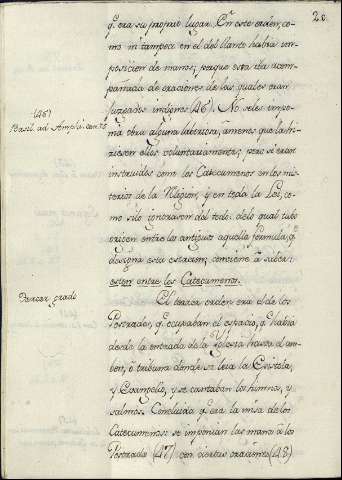 20
q.e era su propio lugar. En este orden, co-
mo ni tampoco en el del llanto había im-
posicion de manos; porque esta iba acom-
pañada de oraciones de las quales eran
juzgados indignos (46). No seles impo-
nia obra alguna laboriosa, àmenos que la hi-
ciesen ellos voluntariamente; pero si eran
instruidos como los Catecumenos en los mis-
terios de la Religion, y en toda la Ley, co-
mo silo ignorasen del todo: delo qual tubo
origen entre los antiguos aquella formula, q.e
designa esta estacion; conviene à saber:
esten entre los Catecumenos.
(46)
Basil. ad Amphil. can. 75
Tercer grado
El tercer orden era el de los
Postrados, q.e ocupaban el espacio, q.e habia
desde la entrada de la Yglesia hasta el am-
bon, ò tribuna donde se leia la Epistola,
y Evangelio, y se cantaban los himnos, y
salmos. Concluida q.e era la misa de los
Catecumenos: se imponian las manos à los
Postrados (47) con ciertas oraciones (48)